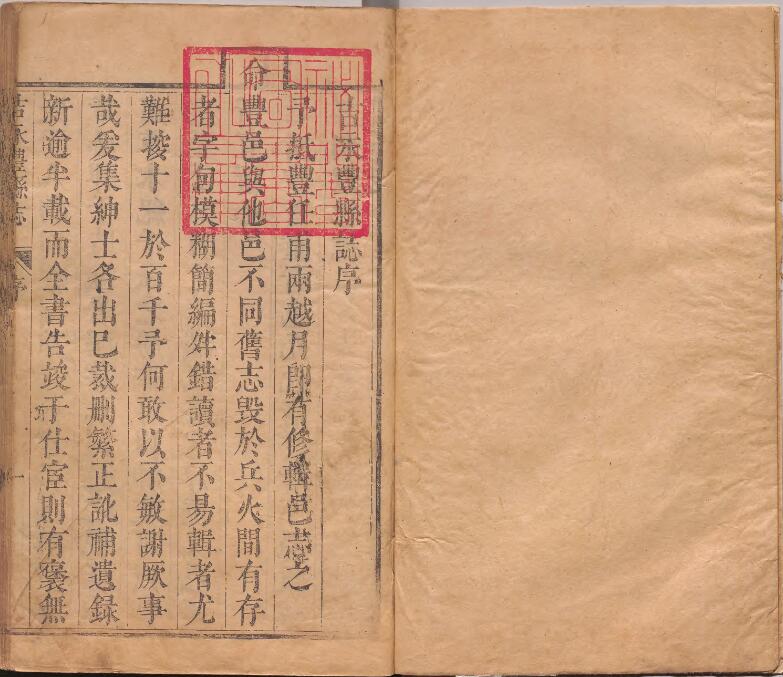 吉永豐縣誌序
予抵豐任甫兩越月即有修輯邑志之
命豐邑與他邑不同舊志毀於兵火間有存
者字句模糊簡編舛錯讀者不易輯者尤
難按十一於百千予何敢以不敏謝厥事
哉爰集紳士各出已裁刪繁正訛補遺錄
新逾半載而全書告竣于仕宦則有褒無
吉永豐縣志 序 一